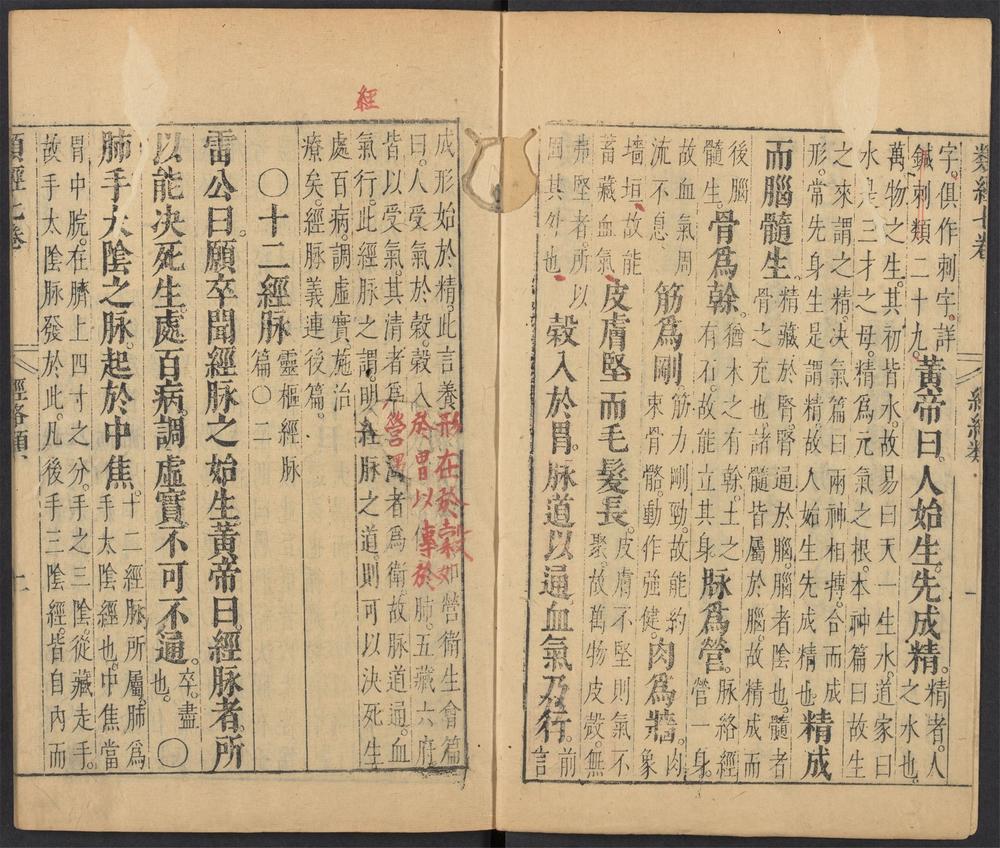 類經七卷 經絡類
字。俱作刺字。詳
鍼刺類二十九。
黃帝曰。人始生。先成精。
精者。人
之水也。
萬物之生。其初皆水。故易曰天一生水。道家曰
水是三才之母。精爲元氣之根。本神篇曰故生
之來謂之精。決氣篇曰兩神相搏。合而成
形。常先身生。是謂精。故人始生先成精也
精成
而腦髓生。
精藏於腎。腎通於腦。腦者陰也。髓者
骨之充也。諸髓皆屬於腦。故精成而
後腦
髓生。
骨爲幹。
猶木之有幹。土之
有石。故能立其身。
脈爲營。
脈絡經
營一身。
故血氣周
流不息
筋爲剛
筋力剛勁。故能約
束骨骼。動作強健。
肉爲牆。
肉
象
墻垣。故能
蓄藏血氣。
皮膚堅而毛髮長。
皮膚不堅則氣不
聚。故萬物皮殼。無
弗堅者。所以
固其外也
穀入於胃。脈道以通。血氣乃行。
前
言
成形始於精。此言養形在於穀。如營衛生會篇
曰。人受氣於穀。穀入於胃。以專於肺。五藏六府
皆以受氣。其清者爲營。濁者爲衛。故脈道通。血
氣行。此經脈之謂。明經脈之道。則可以決死生
處百病。調虛實。施治
療矣。經脈義連後篇
經
〇十二經脈
靈樞經脈
篇〇二
雷公曰。願卒聞經脈之始生。黃帝曰。經脈者。所
以能決死生。處百病。調虛實。不可不通。
卒。盡
也。
〇
肺手太陰之脈。起於中焦。
十二經脈所屬。肺爲
手太陰經也。中焦當
胃中脘。在臍上四寸之分。手之三陰。從藏走手。
故手太陰脈發於此。凡後手三陰經。皆自內而
類經七卷 經絡類 十一